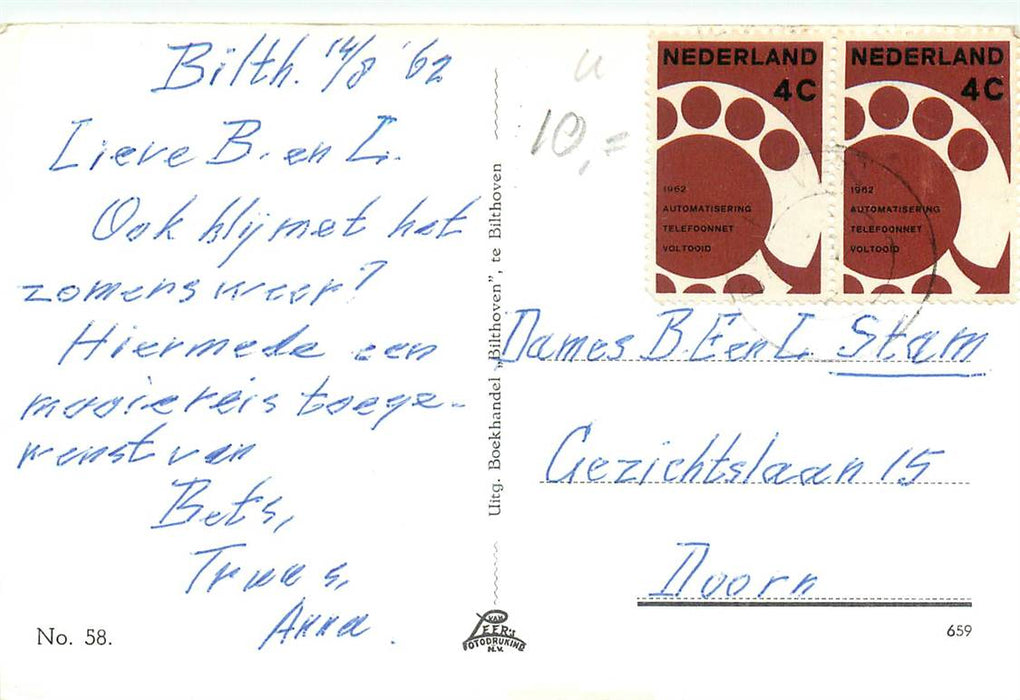 Bilth. 14/8 '62
Lieve B. en L.
Ook blij met het
zomersweer?
Hiermede een
mooie reis toege-
wenst van
Bets,
Truus,
Anna.
No. 58.
Uitg. Boekhandel „Bilthoven", te Bilthoven
VAN
LEER's
FOTODRUKIND
N.V.
10,=
NEDERLAND
4C
1962
AUTOMATISERING
TELEFOONNET
VOLTOOID
NEDERLAND
4C
1962
AUTOMATISERING
TELEFOONNET
VOLTOOID
Dames B. E en L Stam
Gezichtslaan 15
Doorn
659